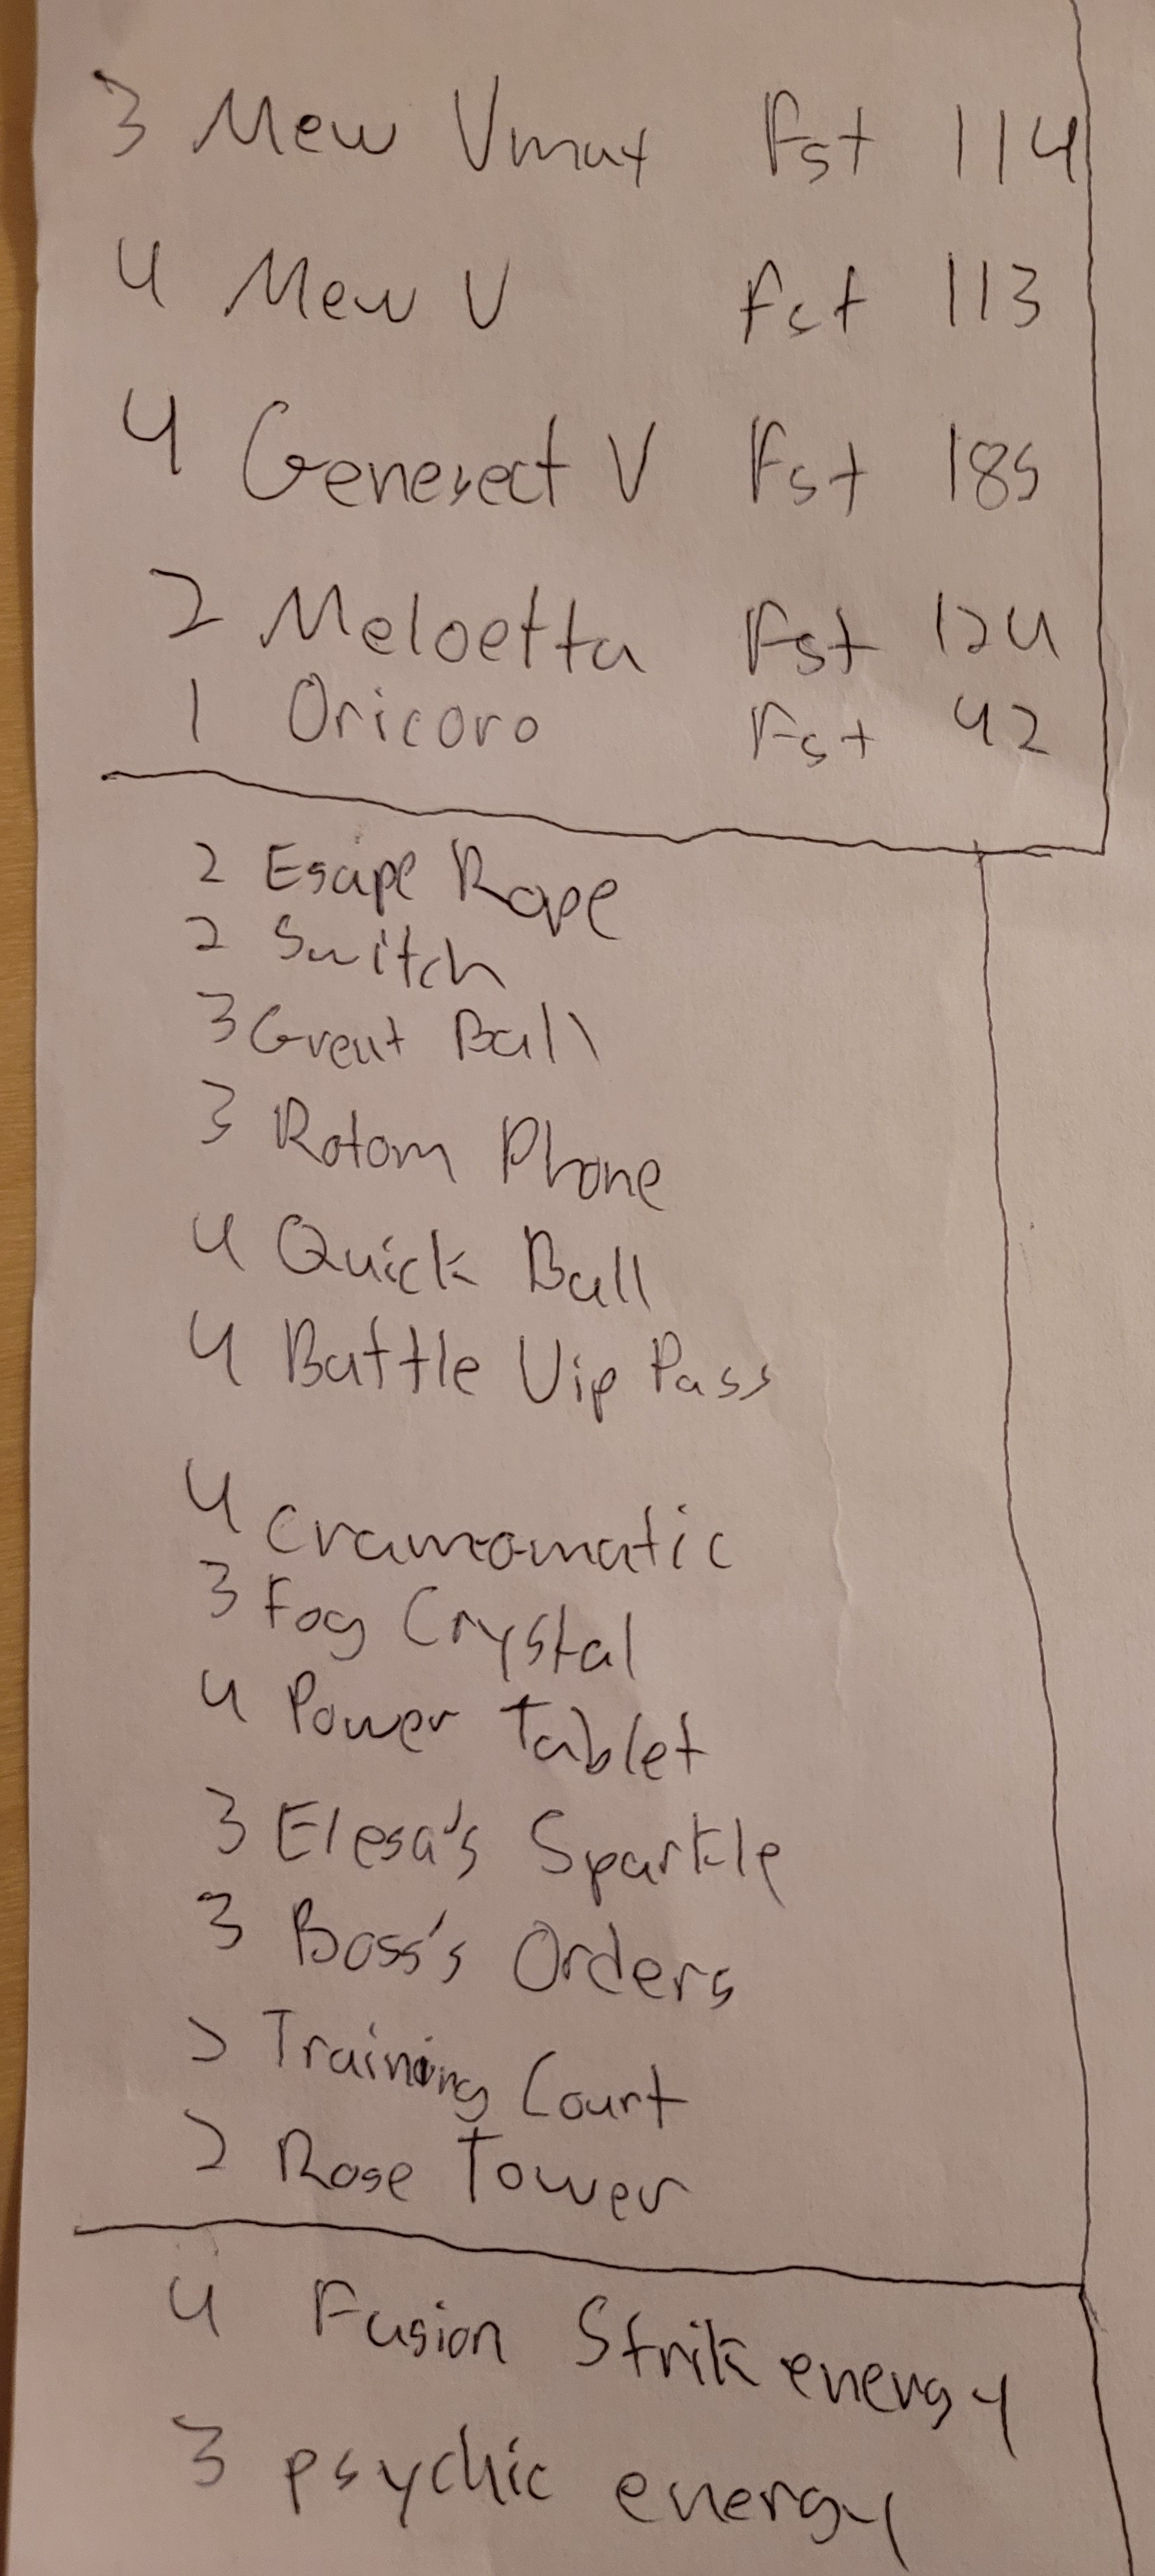 3 Mew Vmax Fst 114
4 Mew V Fst 113
4 Genesect V Fst 185
2 Meloetta Fst 124
1 Oricoro Fst 42
2 Escape Rope
2 Switch
3 Great Ball
3 Rotom Phone
4 Quick Ball
4 Battle Vip Pass
4 Cramomatic
3 Fog Crystal
4 Power Tablet
3 Elesa's Sparkle
3 Boss's Orders
2 Training Court
2 Rose Tower
4 Fusion Strik energy
3 psychic energy